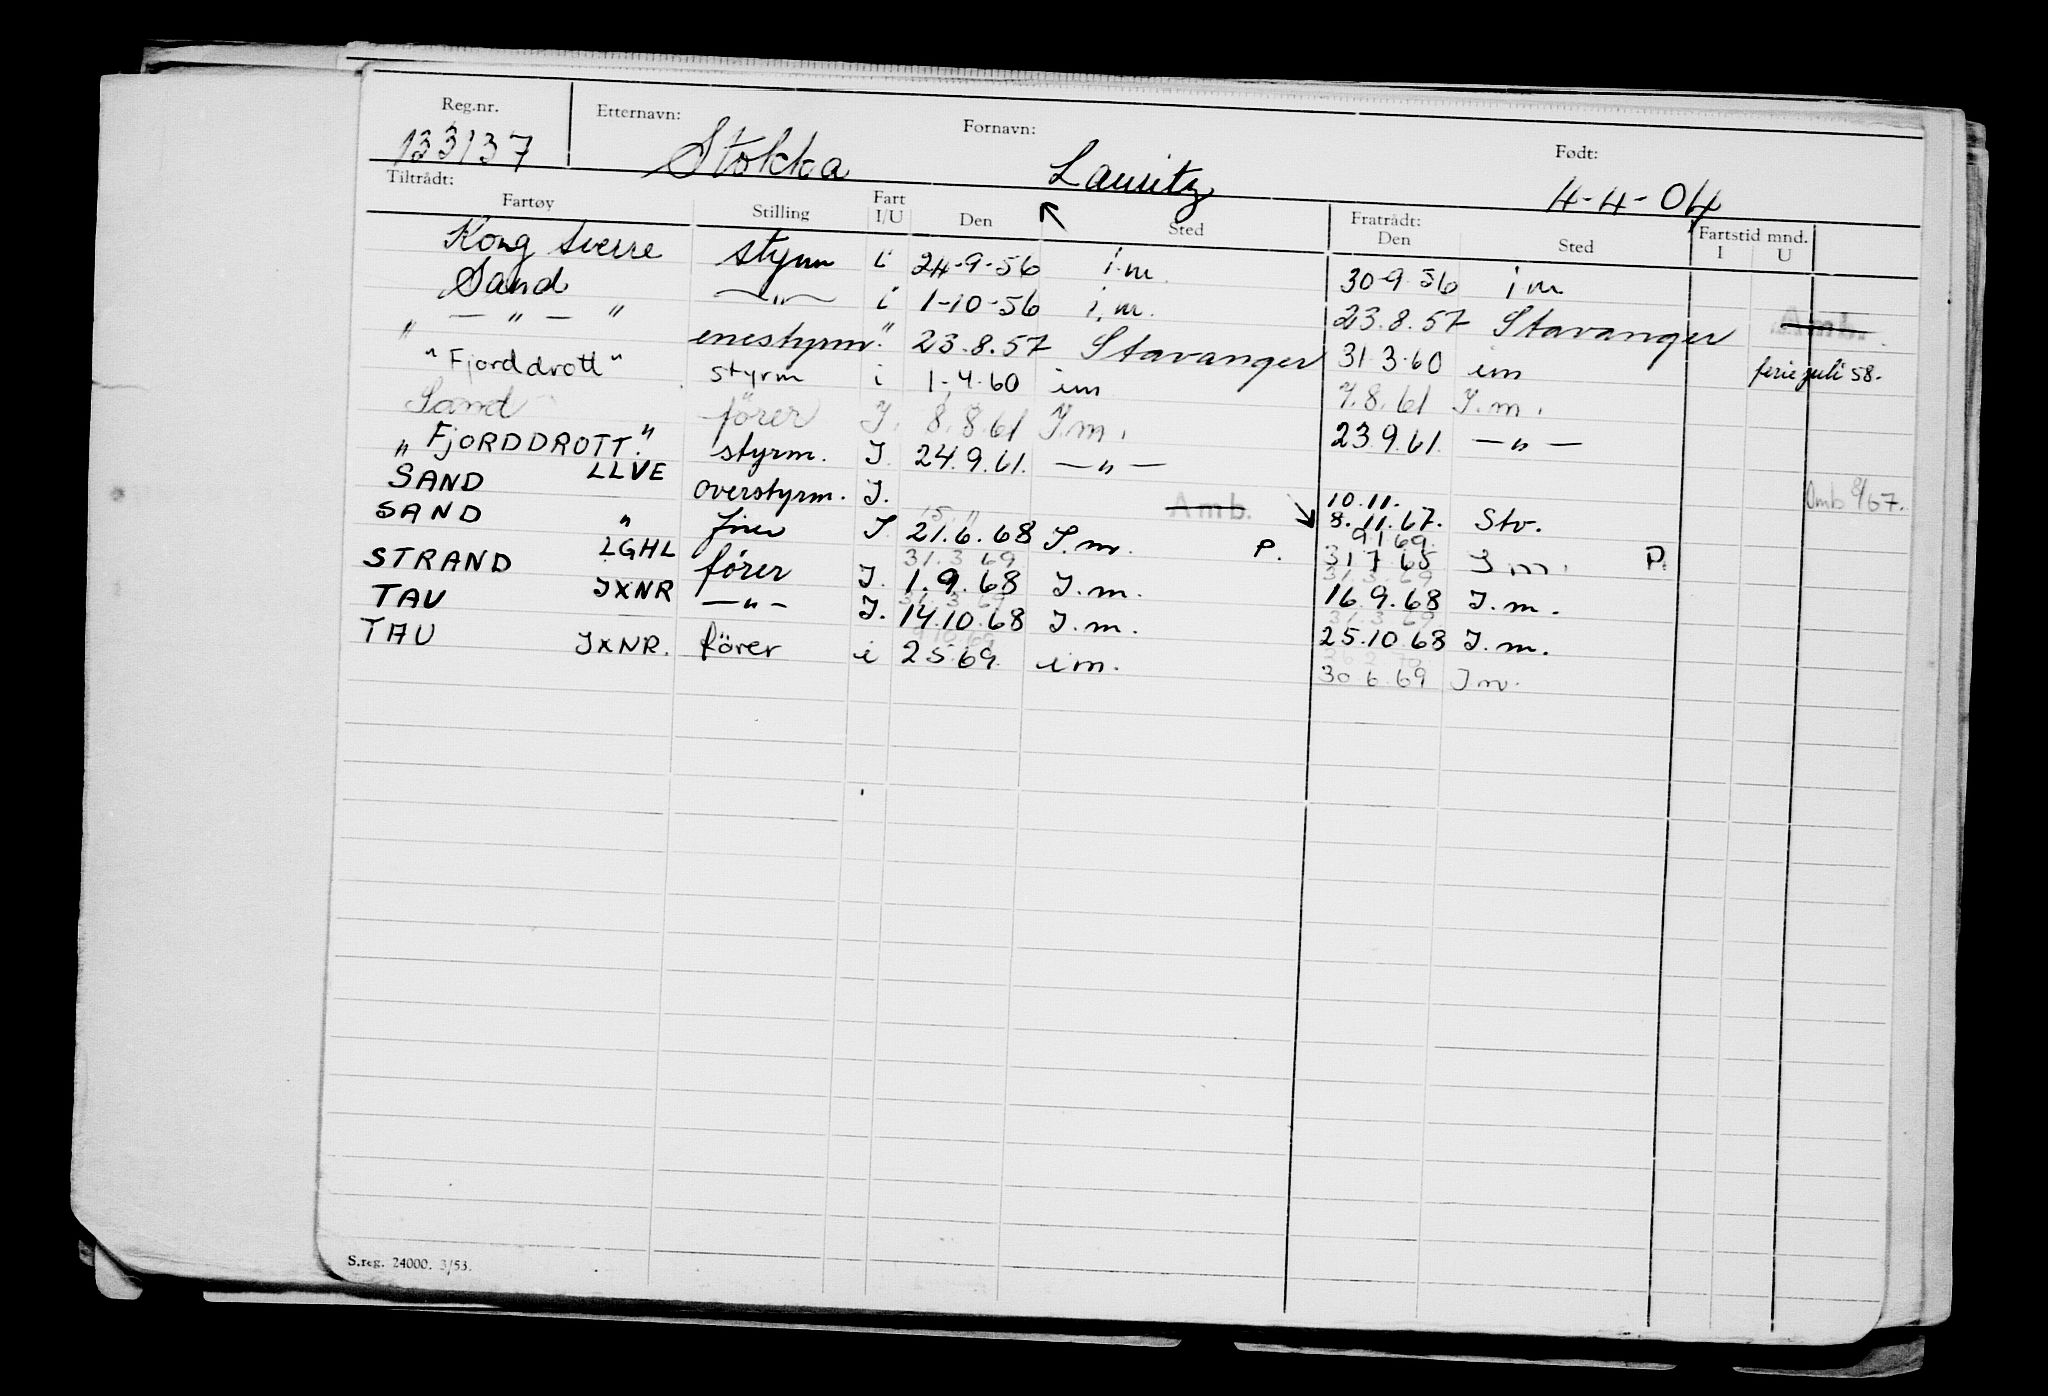 Reg.nr. Etternavn: Fornavn: Født:
133137 Stokka Lauritz 4-4-04
Tiltrådt: Fratrådt:
Fartøy Stilling Fart I/U Den Sted Den Sted Fartstid mnd. I U
Kong Sverre styrm i 24-9-56 i.m. 30-9-56 i m
Sand —"— i 1-10-56 i.m. 23.8.57 Stavanger Amb.
" — " — " enestyrm. " 23.8.57 Stavanger 31 3.60 im ferie juli 58.
"Fjorddrott" styrm i 1.4.60 im 7.8.61 I.m.
Sand fører I. 8.8.61 I.m. 23.9.61. —"—
"FJORDDROTT." styrm. I. 24.9.61. —"—
SAND LLVE overstyrm. I. Amb. 10.11. 8.11.67. Stv. Omb 8/67.
SAND " fører I 21.6.68 I.m. P. 31 7 68 I m. P.
STRAND LGHL fører I. 1.9.68 I.m. 16.9.68 I.m.
TAU JXNR —"— I. 14.10.68 I.m. 25.10.68 I.m.
TAU JXNR. förer i 2 5.69. im. 30.6.69 I m.
S.reg. 24000. 3/53.